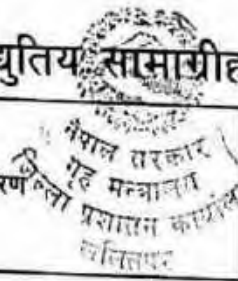 द्युतिय सामाग्रीह
नेपाल सरकार
गृह मन्त्रालय
रण जिल्ला प्रशासन कार्याल
ललितपुर